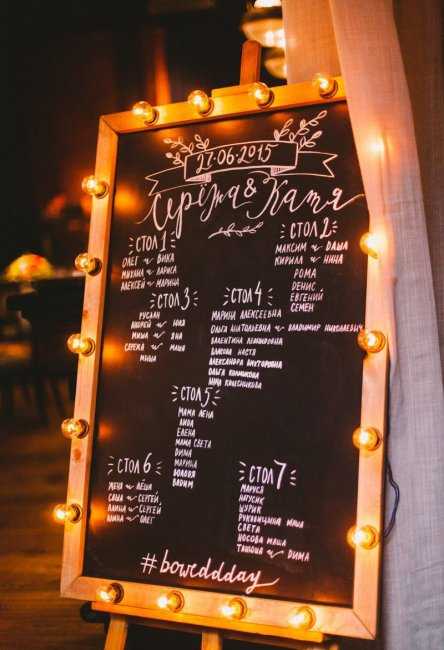 27·06·2015
Серёжа & Катя
СТОЛ 1
ОЛЕГ и ВИКА
МИХАИЛ и ЛАРИСА
АЛЕКСЕЙ и МАРИНА
СТОЛ 2
МАКСИМ и ДАША
КИРИЛЛ и НИНА
РОМА
ДЕНИС
ЕВГЕНИЙ
СЕМЁН
СТОЛ 3
РУСЛАН
АНДРЕЙ и ЮЛЯ
МИША и ЯНА
СЕРЁЖА и МАША
МИША
СТОЛ 4
МАРИНА АЛЕКСЕЕВНА
ОЛЬГА АНАТОЛЬЕВНА и ВЛАДИМИР НИКОЛАЕВИЧ
ВАЛЕНТИНА ЛЕОНИДОВНА
НАСТЯ
АЛЕКСАНДРА ВИКТОРОВНА
ОЛЬГА
НИНА КОЛЕСНИКОВА
СТОЛ 5
МАМА ЛЕНА
ЛИДА
ЕЛЕНА
МАМА СВЕТА
ДИМА
МАРИНА
ВОЛОДЯ
ВАДИМ
СТОЛ 6
ЖЕНЯ и ЛЁША
САША и СЕРГЕЙ
АЛИНА и СЕРГЕЙ
АЛИНА и ОЛЕГ
СТОЛ 7
МАРУСЯ
НАТУСИК
ШУРИК
РУКАВИЦИНА МАША
СВЕТА
НОСОВА МАША
ТАНЮША и ДИМА
#boweddday